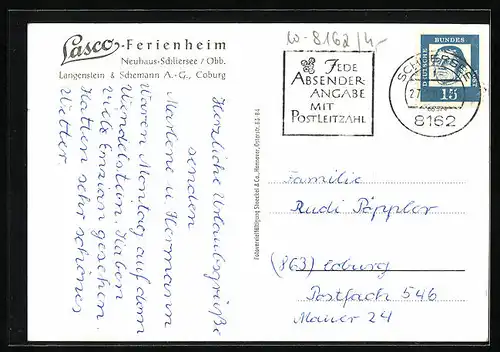 Lasco-Ferienheim
Neuhaus-Schliersee / Obb.
Langenstein & Schemann A.-G., Coburg
Herzliche Urlaubsgrüße
senden
Marlene u. Hermann
Waren Montag auf dem
Wendelstein. Haben
viele Enzian gesehen.
Hatten sehr schönes
Wetter.
W-8162/4,-
JEDE
ABSENDER-
ANGABE
MIT
POSTLEITZAHL
8162
DEUTSCHE
BUNDES
15
Familie
Rudi Päppler
(863) Coburg
Postfach 546
Mauer 24